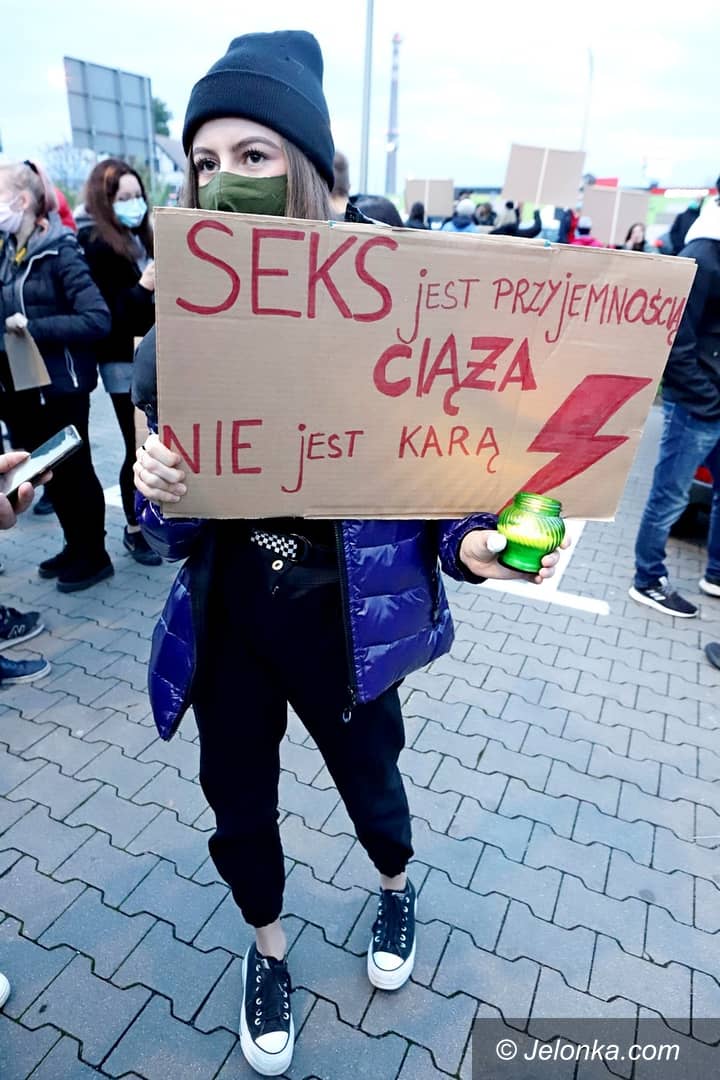 SEKS jEST PRZYjEMNOŚCIĄ
CIĄŻA
NIE jEST KARĄ
© Jelonka.com